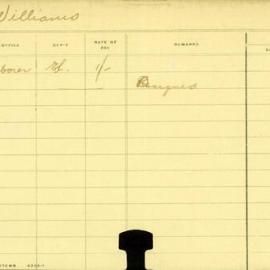 Williams
OFFICE DEP'T RATE OF PAY REMARKS
borer 1/- Resigned